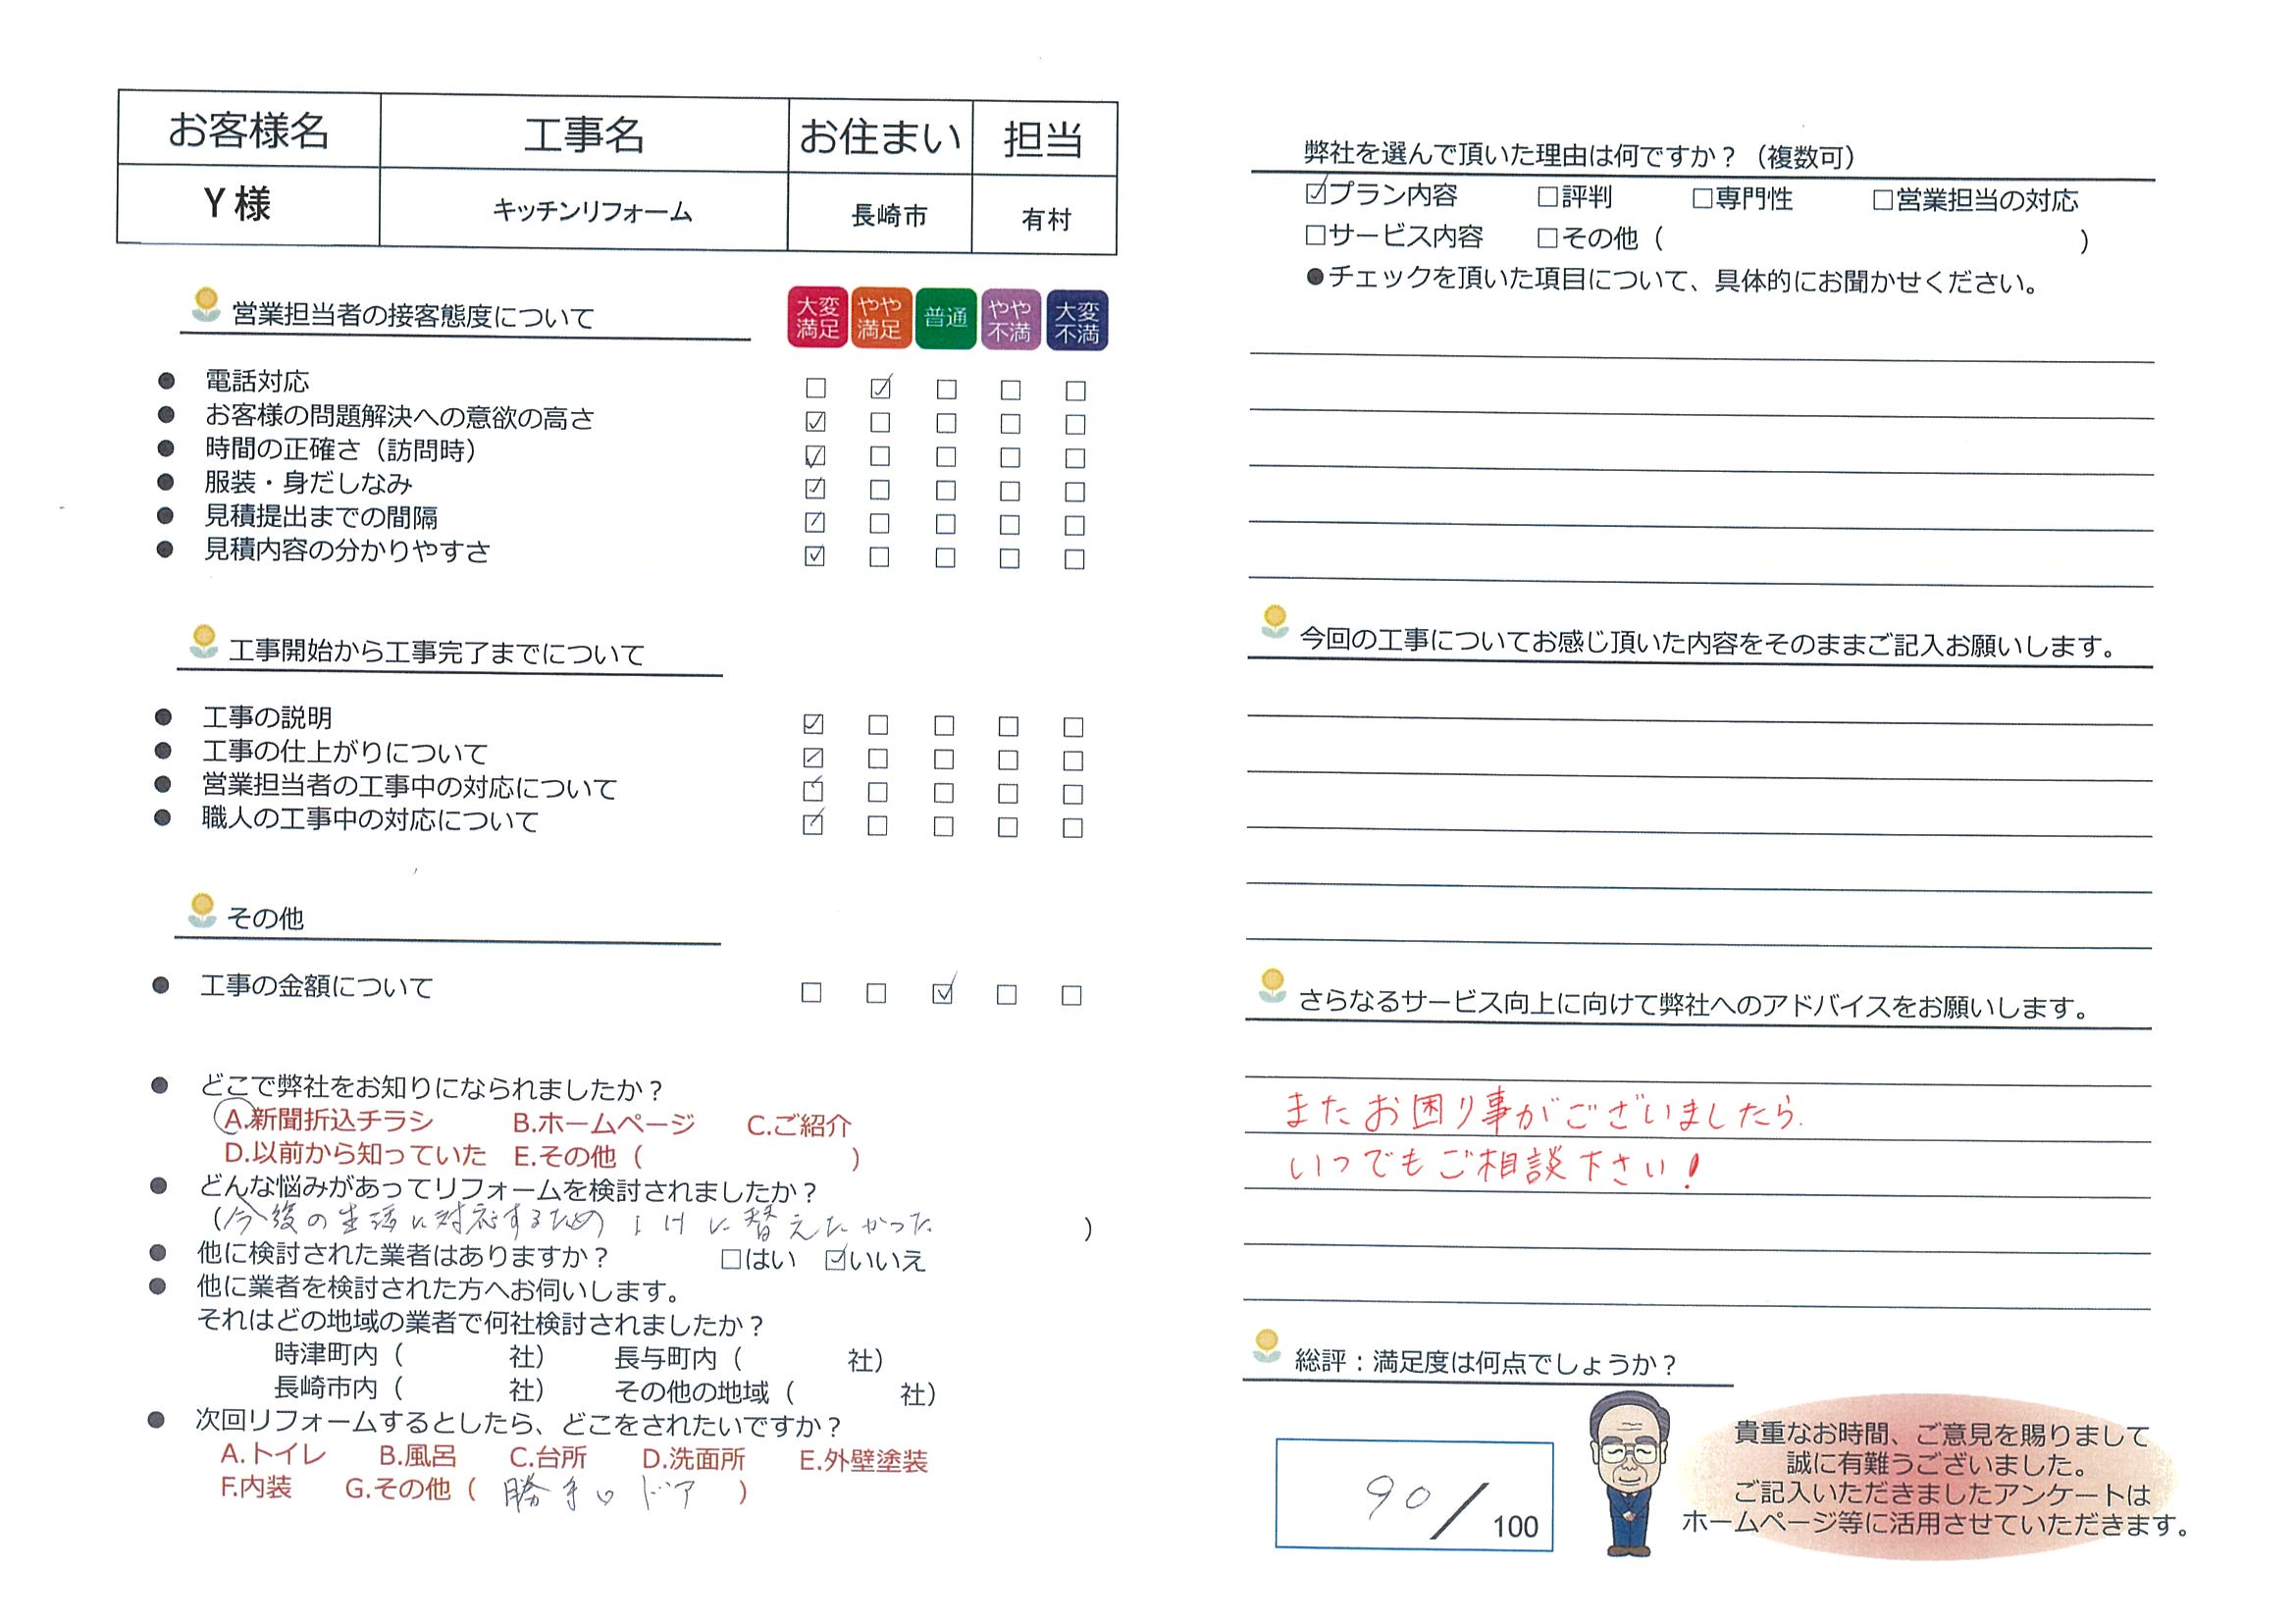 お客様名 工事名 お住まい 担当
Y様 キッチンリフォーム 長崎市 有村
営業担当者の接客態度について 大変満足 やや満足 普通 やや不満 大変不満
● 電話対応 □ ☑ □ □ □
● お客様の問題解決への意欲の高さ ☑ □ □ □ □
● 時間の正確さ（訪問時） ☑ □ □ □ □
● 服装・身だしなみ ☑ □ □ □ □
● 見積提出までの間隔 ☑ □ □ □ □
● 見積内容の分かりやすさ ☑ □ □ □ □
工事開始から工事完了までについて
● 工事の説明 ☑ □ □ □ □
● 工事の仕上がりについて ☑ □ □ □ □
● 営業担当者の工事中の対応について ☑ □ □ □ □
● 職人の工事中の対応について ☑ □ □ □ □
その他
● 工事の金額について □ □ ☑ □ □
● どこで弊社をお知りになられましたか？
A.新聞折込チラシ B.ホームページ C.ご紹介
D.以前から知っていた E.その他（ ）
● どんな悩みがあってリフォームを検討されましたか？
（今後の生活に対応するため に替えたかった ）
● 他に検討された業者はありますか？ □はい ☑いいえ
● 他に業者を検討された方へお伺いします。
それはどの地域の業者で何社検討されましたか？
時津町内（ 社） 長与町内（ 社）
長崎市内（ 社） その他の地域（ 社）
● 次回リフォームするとしたら、どこをされたいですか？
A.トイレ B.風呂 C.台所 D.洗面所 E.外壁塗装
F.内装 G.その他（ 勝手口ドア ）
弊社を選んで頂いた理由は何ですか？（複数可）
☑プラン内容 □評判 □専門性 □営業担当の対応
□サービス内容 □その他（ ）
●チェックを頂いた項目について、具体的にお聞かせください。
今回の工事についてお感じ頂いた内容をそのままご記入お願いします。
さらなるサービス向上に向けて弊社へのアドバイスをお願いします。
またお困り事がございましたら
いつでもご相談下さい！
総評：満足度は何点でしょうか？
90／100
貴重なお時間、ご意見を賜りまして
誠に有難うございました。
ご記入いただきましたアンケートは
ホームページ等に活用させていただきます。